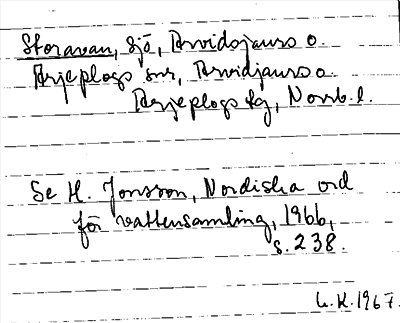 Storavan, sjö, Arvidsjaurs o.
Arjeplogs snr, Arvidsjaurs o.
Arjeplogs lg, Norrb. l.
Se H. Jonsson, Nordiska ord
för vattensamling, 1966,
s. 238.
L.K. 1967.